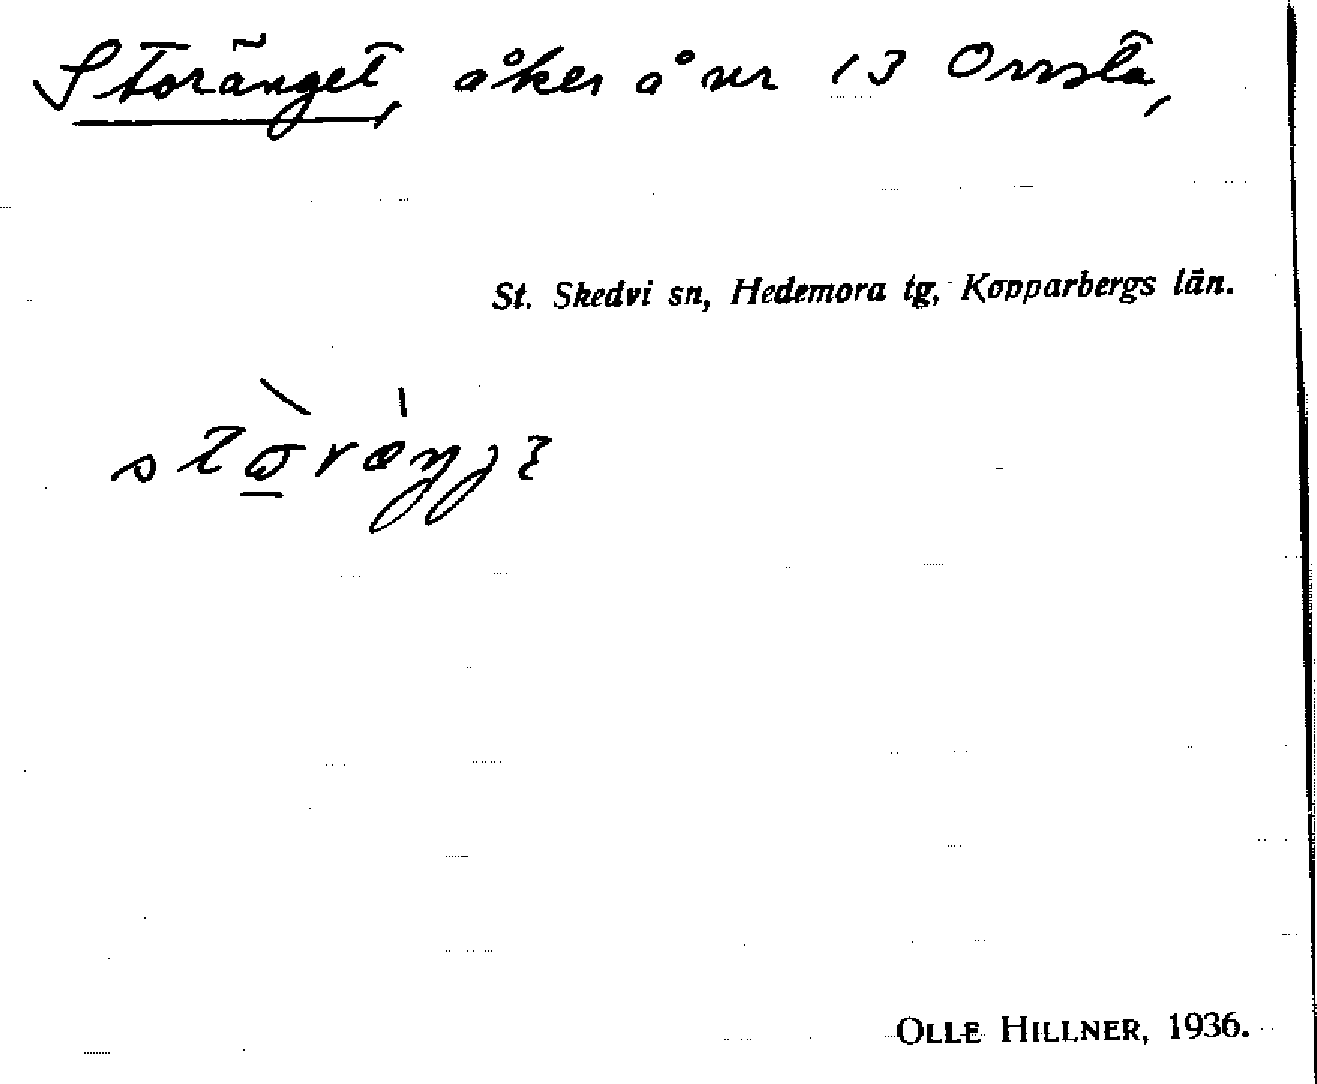 Storänget, åker å nr 13 Ornsta,
St. Skedvi sn, Hedemora tg, Kopparbergs län.
OLLE HILLNER, 1936.